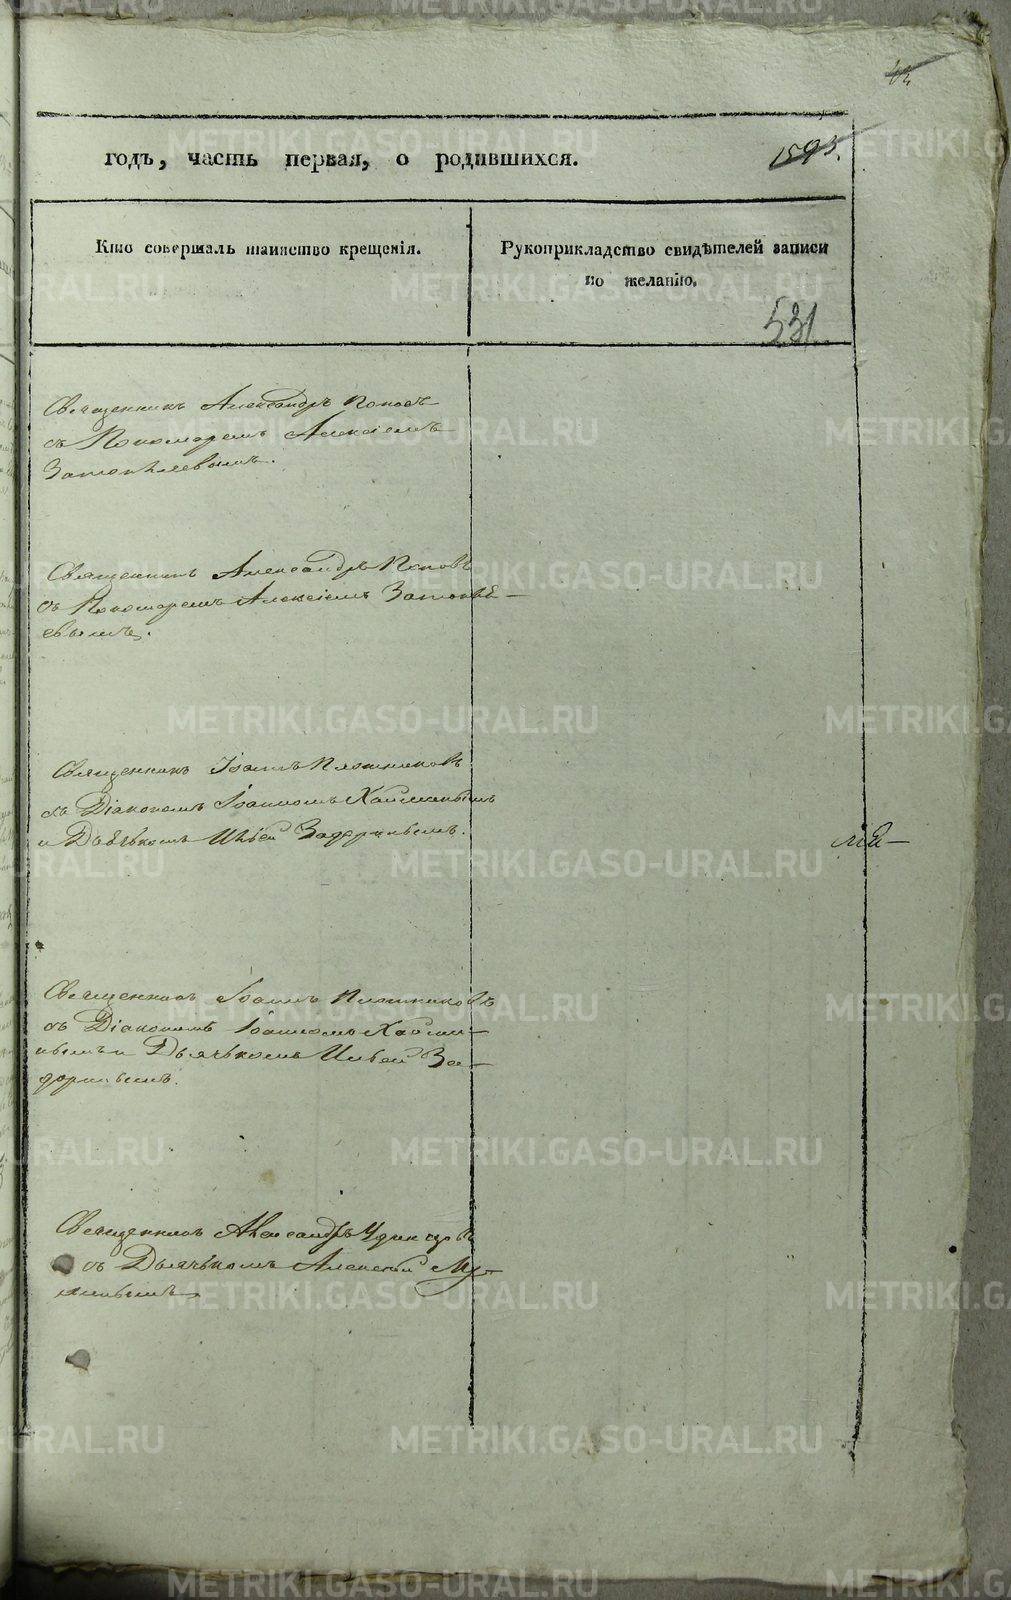 годъ, часть первая, о родившихся.
1593.
Кто совершалъ таинство крещенія.
Рукоприкладство свидѣтелей записи
по желанію.
531.
Священникъ Александръ Поповъ
съ Пономаремъ Алексіемъ
Затопляевымъ.
Священникъ Александръ Поповъ
съ Пономаремъ Алексіемъ
вымъ.
Священникъ Іоаннъ Плотниковъ
съ Діакономъ Іоанномъ
и Дьячькомъ Ильей Задоринымъ.
Священникъ Іоаннъ Плотниковъ
съ Діакономъ Іоанномъ
нымъ и Дьячькомъ Ильей За-
доринымъ.
Священникъ Александръ Удинцовъ
съ Дьячькомъ Алексѣй
METRIKI.GASO-URAL.RU